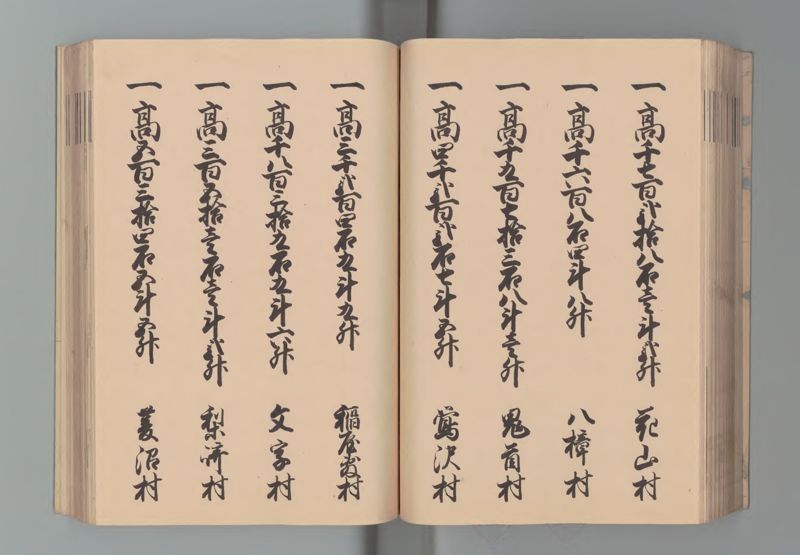 一 高千七百弐拾八石壱斗弐升 花山村
一 高千六百八石四斗八升 八樟村
一 高千九百七拾三石八斗壱升 鬼首村
一 高四千弐百弐石七斗五升 鶯沢村
一 高三千弐百四石九斗九升 稲屋敷村
一 高千八百三拾九石九斗六升 文字村
一 高三百五拾壱石壱斗弐升 梨崎村
一 高五百三拾四石五斗五升 菱沼村